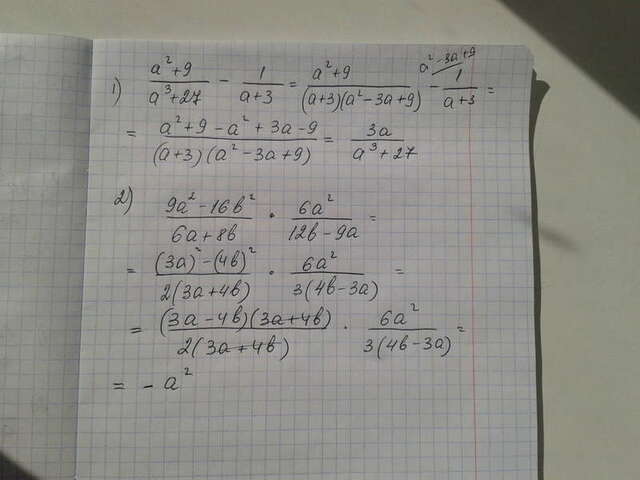 1) (a²+9)/(a³+27) - 1/(a+3) = (a²+9)/((a+3)(a²-3a+9)) - 1/(a+3) =  a²-3a+9
= (a²+9-a²+3a-9)/((a+3)(a²-3a+9)) = 3a/(a³+27)
2) (9a²-16b²)/(6a+8b) · 6a²/(12b-9a) =
= ((3a)²-(4b)²)/(2(3a+4b)) · 6a²/(3(4b-3a)) =
= ((3a-4b)(3a+4b))/(2(3a+4b)) · 6a²/(3(4b-3a)) =
= - a²